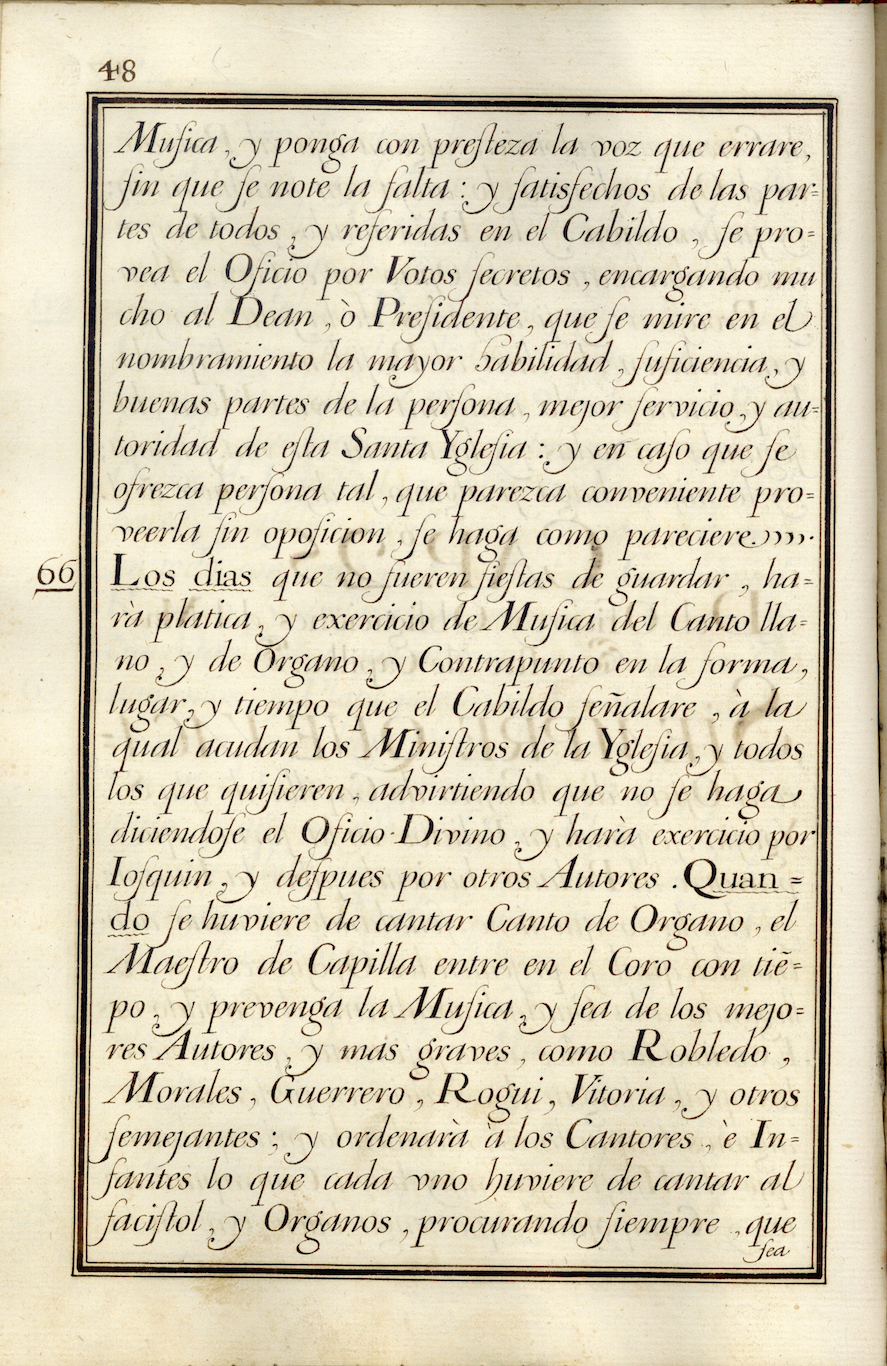 48
Musica, y ponga con presteza la voz que errare,
sin que se note la falta: y satisfechos de las par=
tes de todos, y referidas en el Cabildo, se pro=
vea el Oficio por Votos secretos, encargando mu
cho al Dean, ò Presidente, que se mire en el
nombramiento la mayor habilidad, suficiencia, y
buenas partes de la persona, mejor servicio, y au=
toridad de esta Santa Yglesia: y en caso que se
ofrezca persona tal, que parezca conveniente pro=
veerla sin oposicion, se haga como pareciere.
66 Los dias que no fueren fiestas de guardar, ha=
rà platica, y exercicio de Musica del Canto lla=
no, y de Organo, y Contrapunto en la forma,
lugar, y tiempo que el Cabildo señalare, à la
qual acudan los Ministros de la Yglesia, y todos
los que quisieren, advirtiendo que no se haga
diciendose el Oficio Divino, y harà exercicio por
Iosquin, y despues por otros Autores. Quan=
do se huviere de cantar Canto de Organo, el
Maestro de Capilla entre en el Coro con tiẽ=
po, y prevenga la Musica, y sea de los mejo=
res Autores, y mas graves, como Robledo,
Morales, Guerrero, Rogui, Vitoria, y otros
semejantes; y ordenarà à los Cantores, è In=
fantes lo que cada vno huviere de cantar al
facistol, y Organos, procurando siempre, que
sea